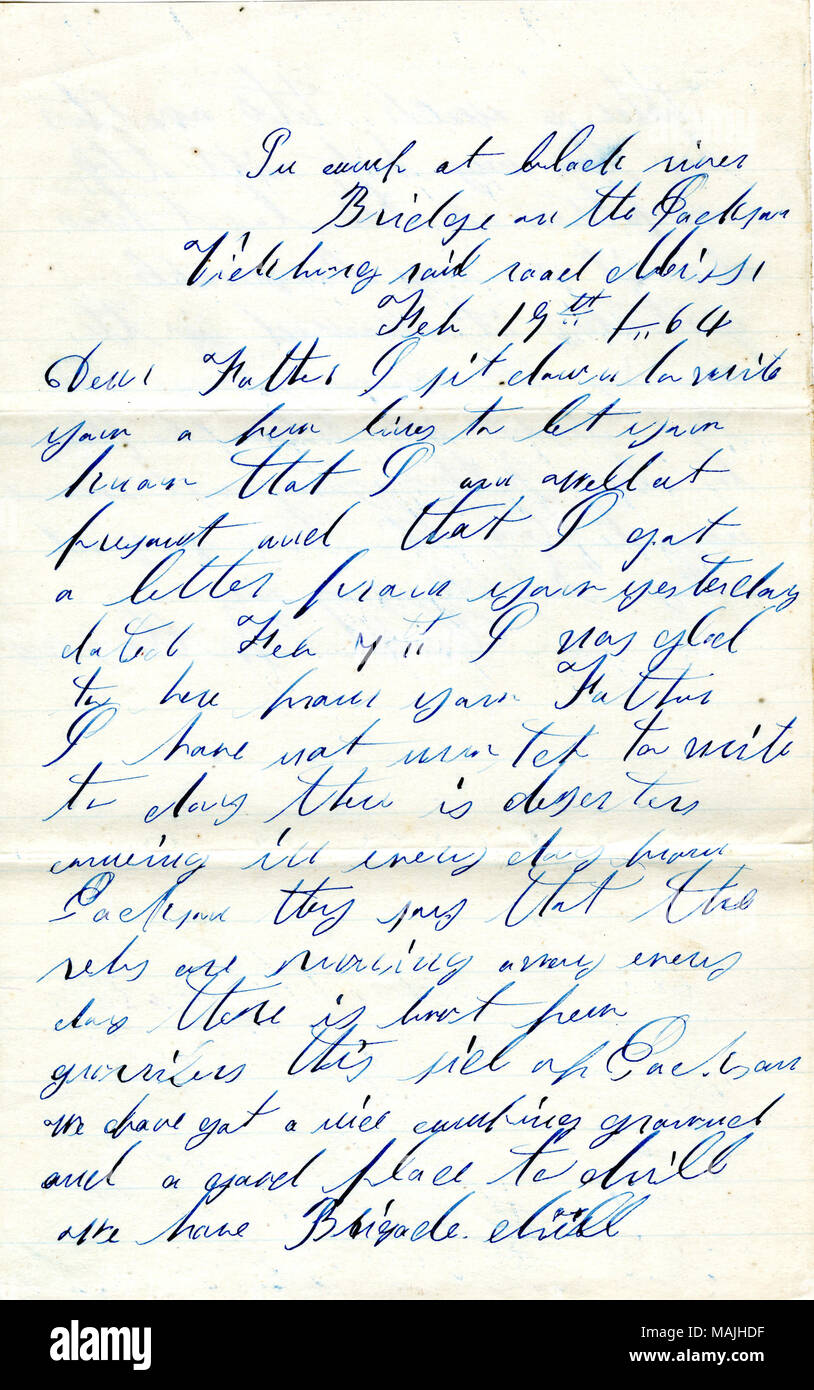 In camp at black river
Bridge on the Jackson
Vicksburg rail road Miss,
Feb 19th /..64
Dear Father I sit down to write
you a few lines to let you
know that I am well at
presant and that I got
a letter from you yesterday
dated Feb 7th I was glad
to here from you Father
I have not much to write
to day there is deserters
comeing in every day from
Jackson they say that the
rebs are moveing away every
day there is but few
gurrilers this side of Jackson
we have got a nice camping ground
and a good place to drill
we have Brigade drill
alamy
Image ID: MAJHDF
www.alamy.com